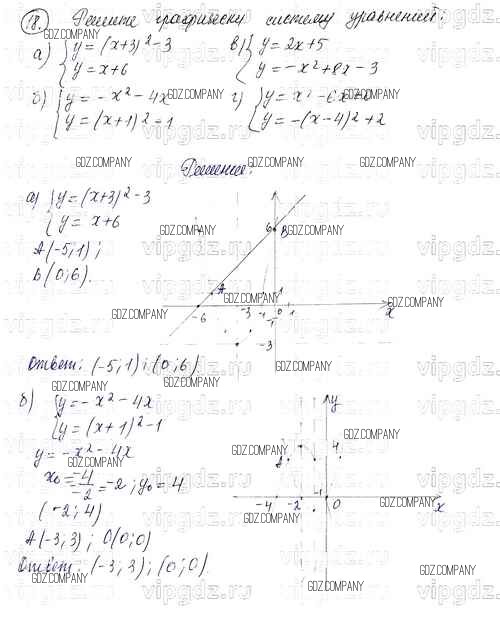 18. Решите графически систему уравнений:
а) { y = (x+3)² - 3
y = x+6
в) { y = 2x+5
y = -x² + 8x - 3
б) { y = -x² - 4x
y = (x+1)² - 1
г) { y = x² - 6x
y = -(x-4)² + 2
Решение:
а) { y = (x+3)² - 3
y = x+6
A(-5,1);
B(0;6).
6 B
A
-6 -3 -1 0 1 x
1
-1
-3
Ответ: (-5,1); (0;6)
б) { y = -x² - 4x
y = (x+1)² - 1
y = -x² - 4x
x₀ = -4/-2 = -2; y₀ = 4
(-2; 4)
A(-3, 3); O(0;0)
Ответ: (-3, 3); (0; 0).
y
A 4
-4 -2 -1 0 x
GDZ.COMPANY
vipgdz.ru